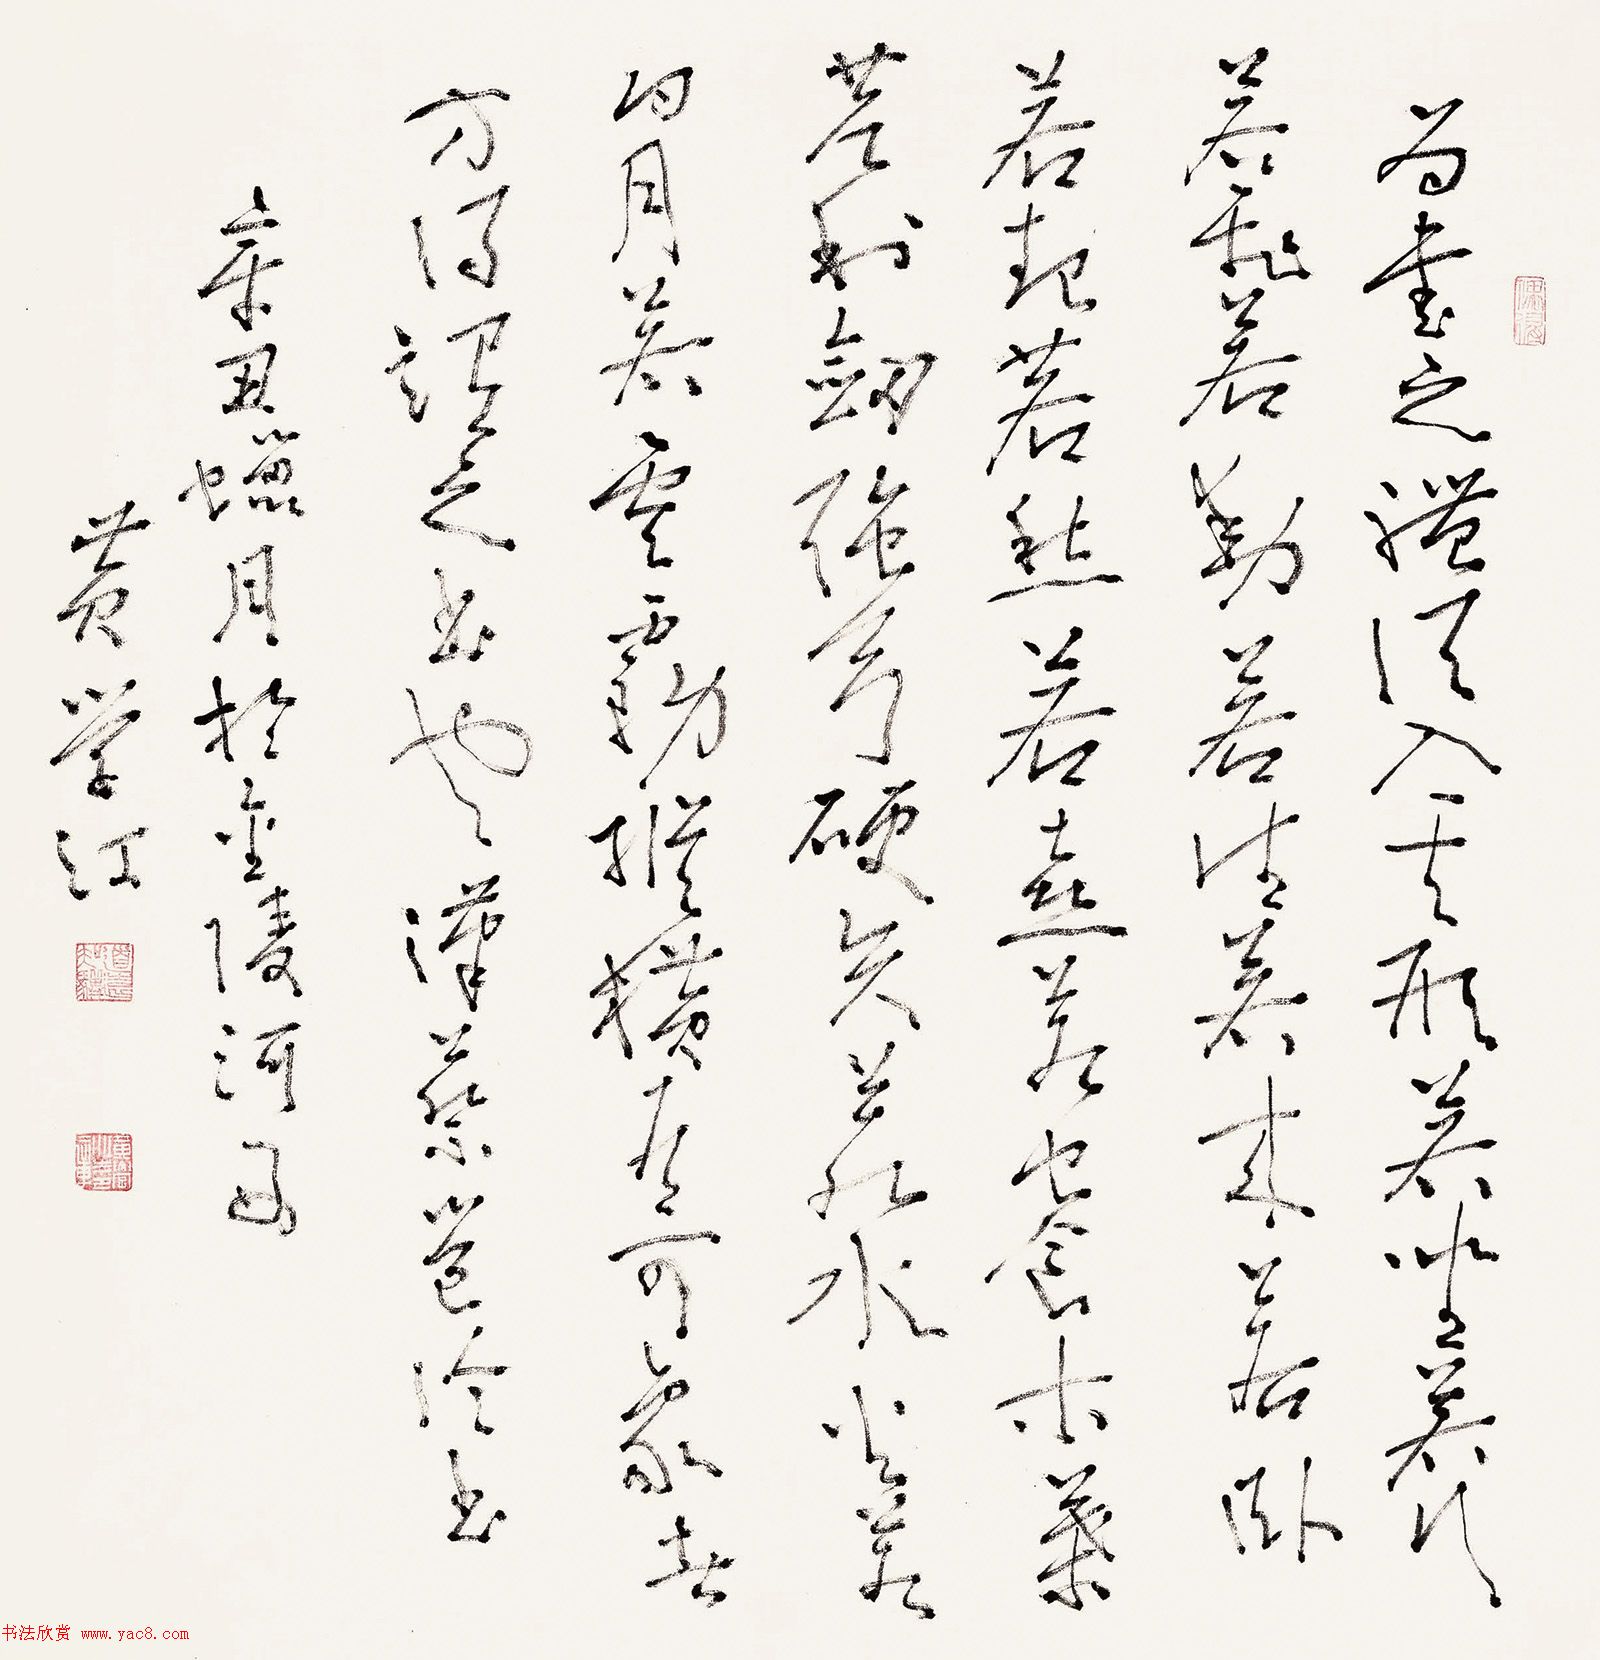 為書之體須入其形若坐若行
若飛若動若往若來若卧
若起若愁若喜若虫食木葉
若利劍強弓硬矢若水火若
日月若雲霧縱橫有可象者
方得謂之書也漢蔡邕論書
辛丑蠟月於金陵河西
黄学江
书法欣赏 www.yac8.com